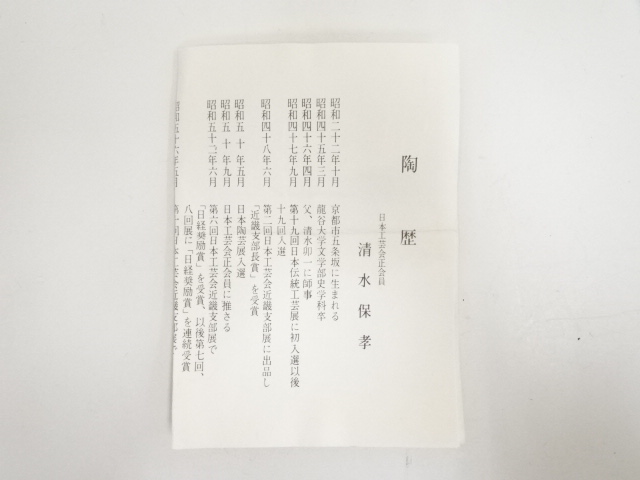 陶歴
日本工芸会正会員
清水保孝
昭和二十二年十月 京都市五条坂に生まれる
昭和四十五年三月 龍谷大学文学部史学科卒
昭和四十六年四月 父、清水卯一に師事
昭和四十七年九月 第十九回日本伝統工芸展に初入選以後
十九回入選
昭和四十八年六月 第二回日本工芸会近畿支部展に出品し
「近畿支部長賞」を受賞
昭和五十年五月 日本陶芸展入選
昭和五十年九月 日本工芸会正会員に推さる
昭和五十二年六月 第六回日本工芸会近畿支部展で
「日経奨励賞」を受賞、以後第七回、
八回展に「日経奨励賞」を連続受賞
昭和五十六年五月 回日本工芸会近畿支部展で